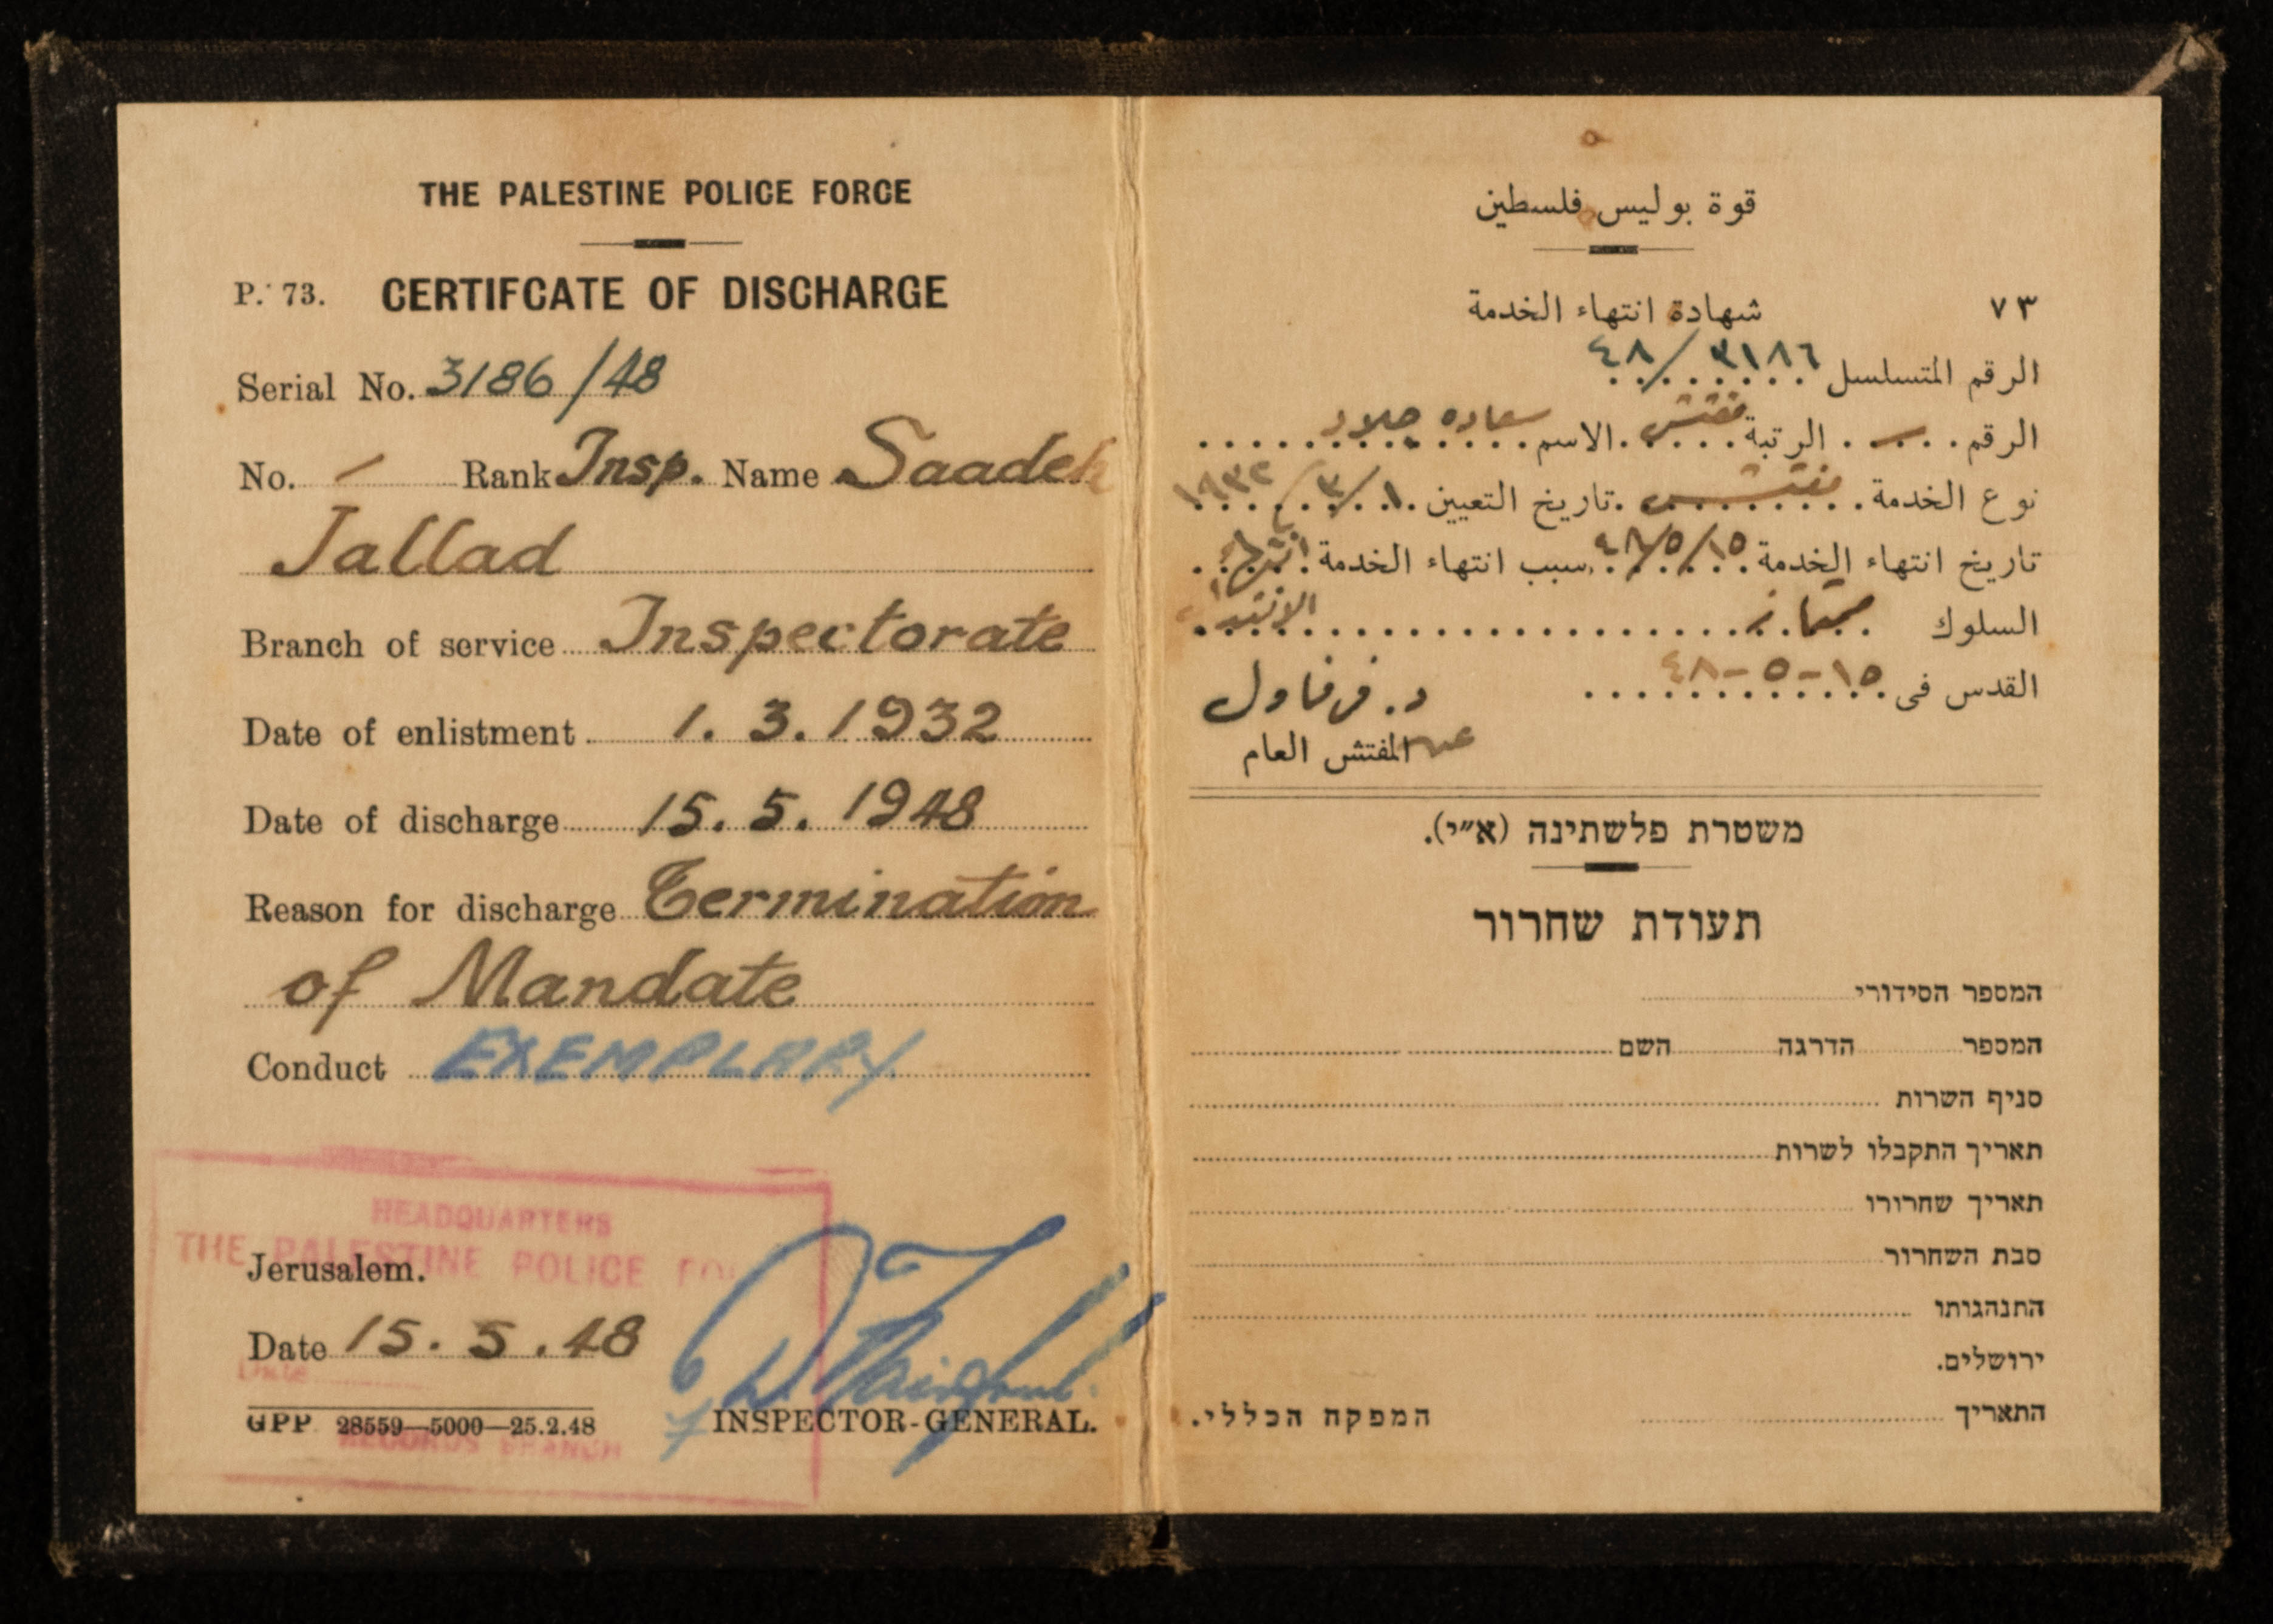 THE PALESTINE POLICE FORCE
P. 73. CERTIFCATE OF DISCHARGE
Serial No. 3186/48
No. - Rank Insp. Name Saadeh
Jallad
Branch of service Inspectorate
Date of enlistment 1. 3. 1932
Date of discharge 15. 5. 1948
Reason for discharge Termination
of Mandate
Conduct EXEMPLARY
HEADQUARTERS
THE PALESTINE POLICE
Jerusalem.
Date 15. 5. 48
Date
GPP 28559—5000—25.2.48
RECORDS BRANCH
INSPECTOR-GENERAL.
قوة بوليس فلسطين
٧٣ شهادة انتهاء الخدمة
الرقم المتسلسل ٣١٨٦/٤٨
الرقم - الرتبة مفتش الاسم سعاده جلاد
نوع الخدمة مفتش تاريخ التعيين ١/٣/١٩٣٢
تاريخ انتهاء الخدمة ١٥/٥/٤٨ سبب انتهاء الخدمة انتهاء
السلوك ممتاز الانتداب
القدس في ١٥-٥-٤٨
عن المفتش العام
משטרת פלשתינה (א״י).
תעודת שחרור
המספר הסידורי
המספר הדרגה השם
סניף השרות
תאריך התקבלו לשרות
תאריך שחרורו
סבת השחרור
התנהגותו
ירושלים.
התאריך המפקח הכללי.